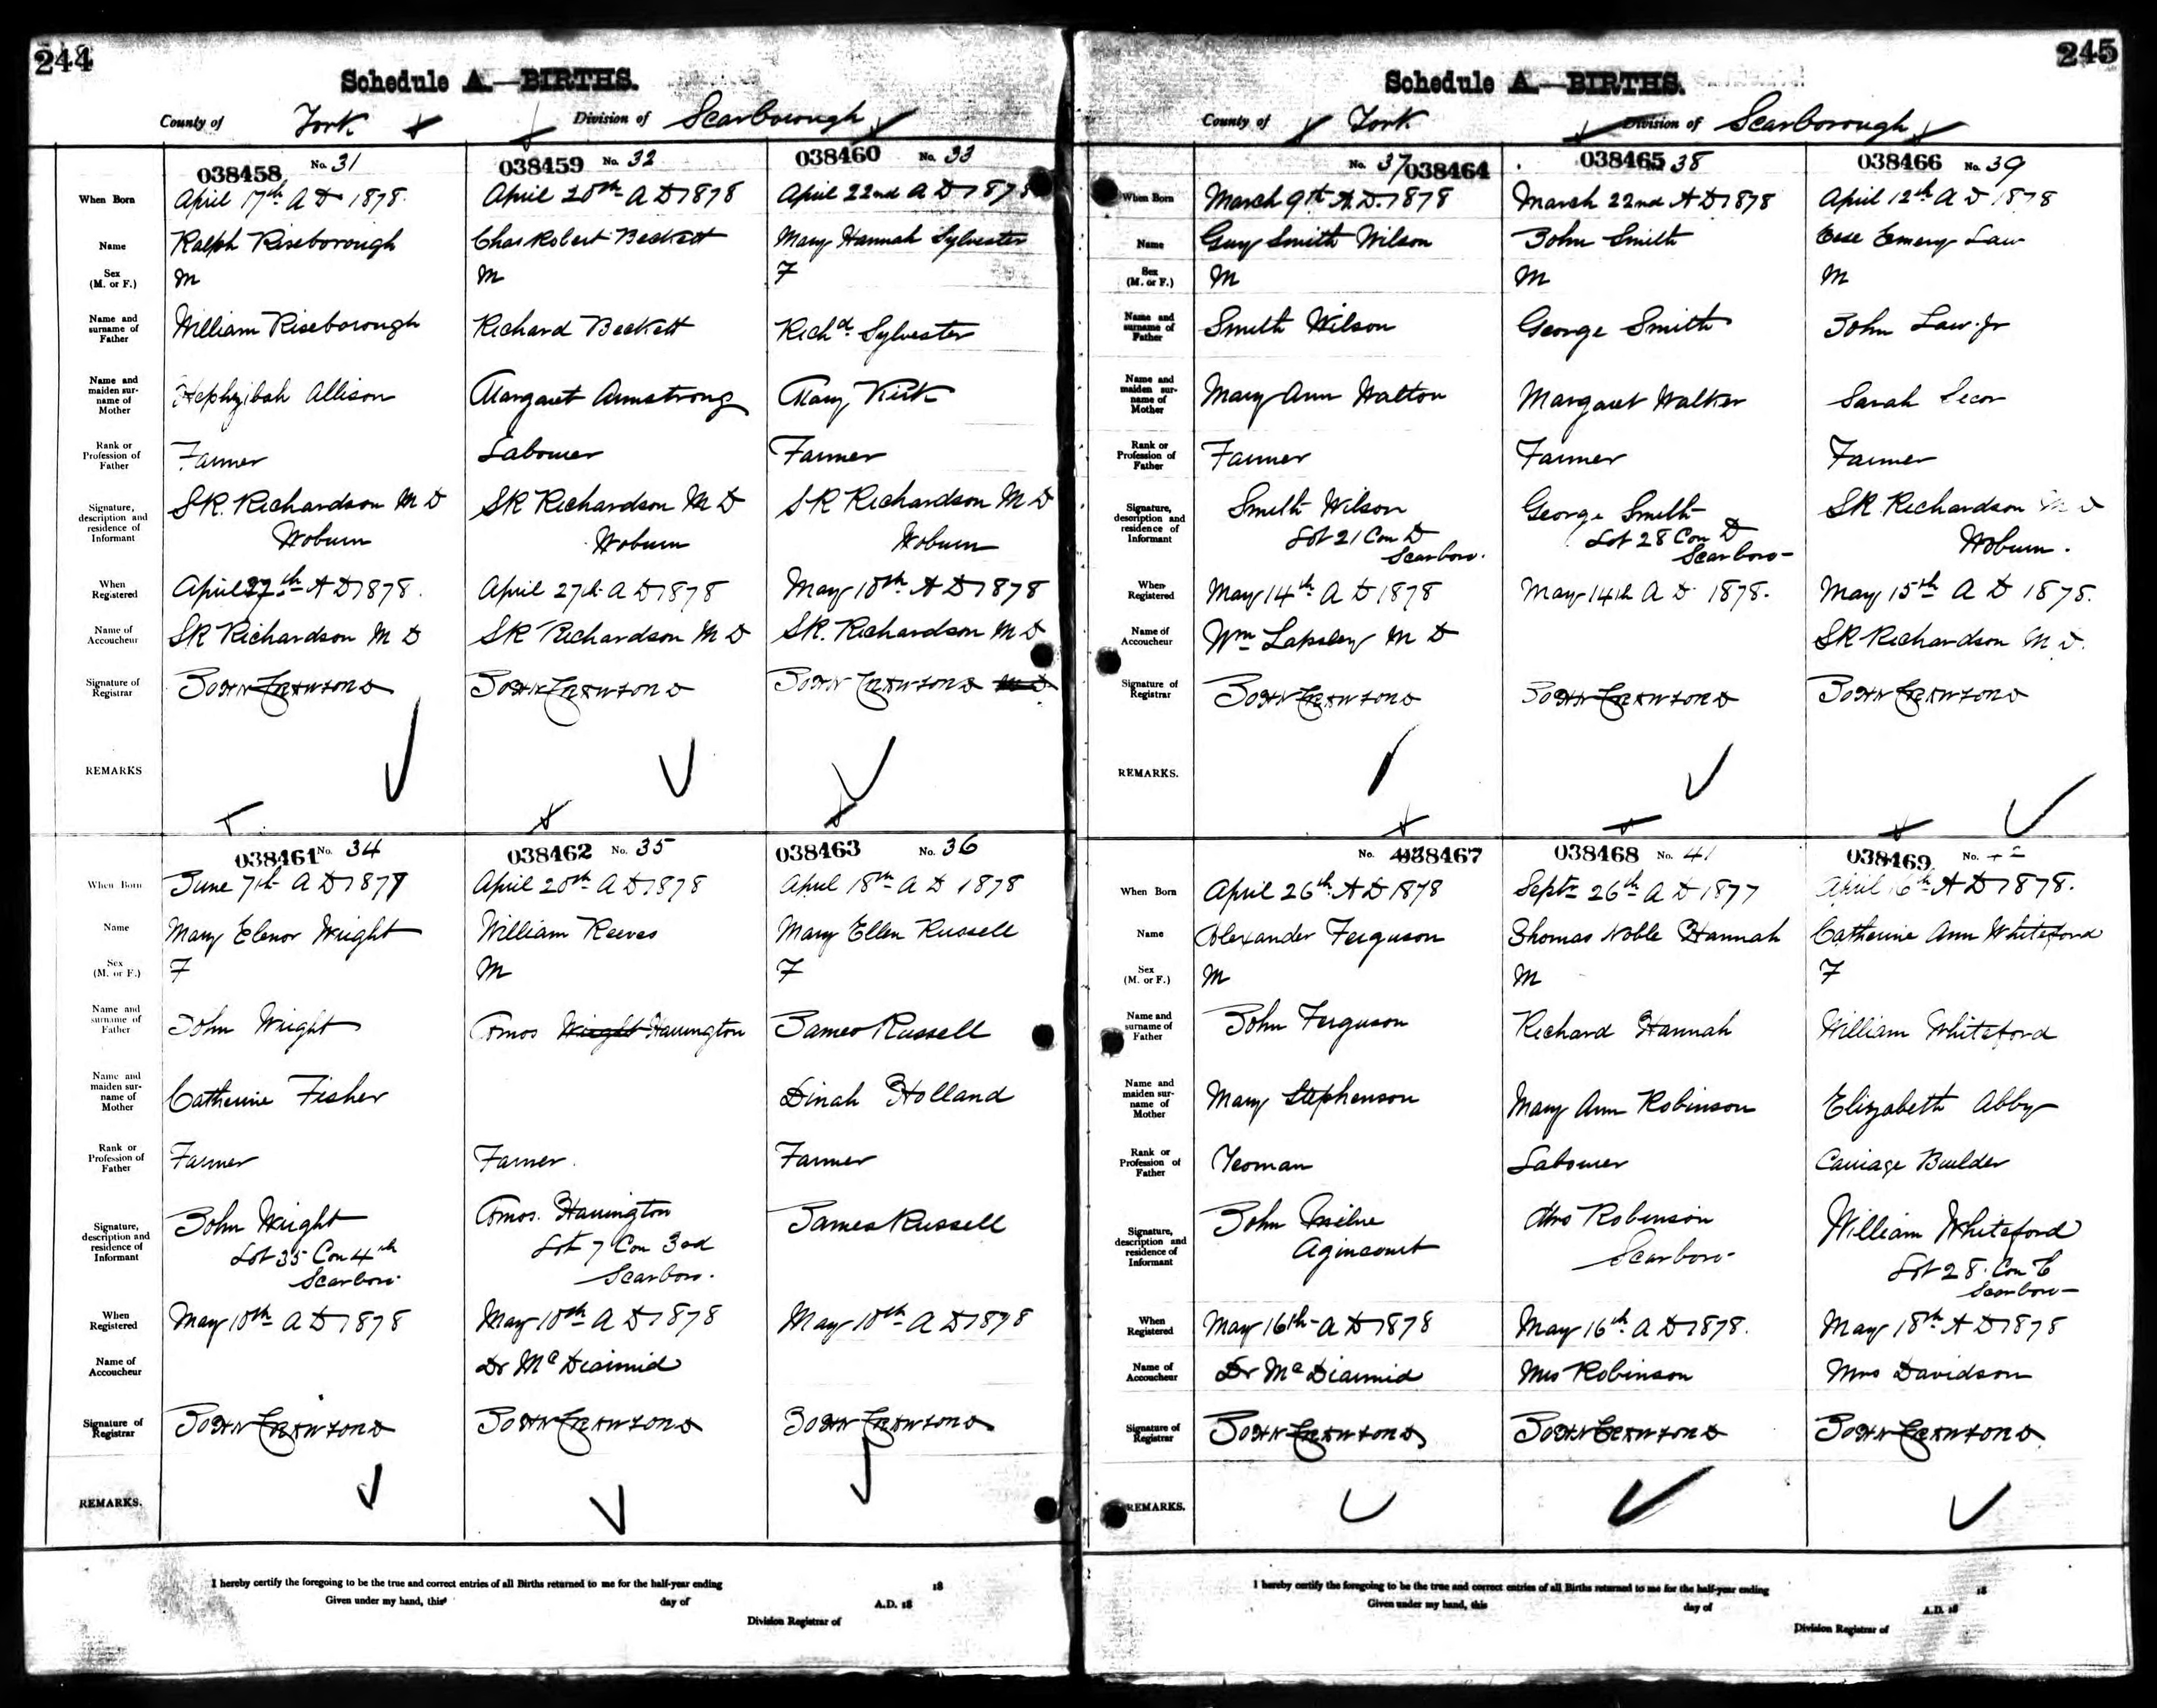 244
Schedule A.—BIRTHS.
County of York Division of Scarborough
038458 No. 31 038459 No. 32 038460 No. 33
When Born April 17th A D 1878. April 20th A D 1878 April 22nd A D 1878
Name Ralph Riseborough Chas Robert Beckett Mary Hannah Sylvester
Sex (M. or F.) M M F
Name and surname of Father William Riseborough Richard Beckett Richd. Sylvester
Name and maiden surname of Mother Hephzibah Allison Margaret Armstrong Mary Kirk
Rank or Profession of Father Farmer Labourer Farmer
Signature, description and residence of Informant S R. Richardson M D S R Richardson M D S R Richardson M D
Woburn Woburn Woburn
When Registered April 27th A D 1878. April 27th A D 1878 May 10th A D 1878
Name of Accoucheur S R Richardson M D S R Richardson M D S R. Richardson M D
Signature of Registrar John Crawford John Crawford John Crawford M D
REMARKS
038461 No. 34 038462 No. 35 038463 No. 36
When Born June 7th A D 1877 April 20th A D 1878 April 18th A D 1878
Name Mary Elenor Wright William Reeves Mary Ellen Russell
Sex (M. or F.) F M F
Name and surname of Father John Wright Amos Wright Harrington James Russell
Name and maiden surname of Mother Catherine Fisher Dinah Holland
Rank or Profession of Father Farmer Farmer. Farmer
Signature, description and residence of Informant John Wright Amos. Harrington James Russell
Lot 35 Con 4th Lot 7 Con 3rd
Scarboro. Scarboro.
When Registered May 10th A D 1878 May 10th A D 1878 May 10th A D 1878
Name of Accoucheur Dr McDiarmid
Signature of Registrar John Crawford John Crawford John Crawford
REMARKS.
I hereby certify the foregoing to be the true and correct entries of all Births returned to me for the half-year ending 18
Given under my hand, this day of A.D. 18
Division Registrar of
245
Schedule A.—BIRTHS.
County of York Division of Scarborough
No. 37 038464 038465 38 038466 No. 39
When Born March 9th A.D. 1878 March 22nd A D 1878 April 12th A D 1878
Name Guy Smith Wilson John Smith Emery Law
Sex (M. or F.) M M M
Name and surname of Father Smith Wilson George Smith John Law Jr
Name and maiden surname of Mother Mary Ann Walton Margaret Walker Sarah Secor
Rank or Profession of Father Farmer Farmer Farmer
Signature, description and residence of Informant Smith Wilson George Smith S R Richardson M D
Lot 21 Con D Lot 28 Con D Woburn.
Scarboro. Scarboro
When Registered May 14th A D 1878 May 14th A D 1878. May 15th A D 1878.
Name of Accoucheur Wm Lapsley M D S R Richardson M D.
Signature of Registrar John Crawford John Crawford John Crawford
REMARKS.
No. 038467 038468 No. 41 038469 No.
When Born April 26th A D 1878 Septr 26th A D 1877 April 16th A D 1878.
Name Alexander Ferguson Thomas Noble Hannah Catherine Ann Whiteford
Sex (M. or F.) M M F
Name and surname of Father John Ferguson Richard Hannah William Whiteford
Name and maiden surname of Mother Mary Stephenson Mary Ann Robinson Elizabeth Abby
Rank or Profession of Father Yeoman Labourer Carriage Builder
Signature, description and residence of Informant John Milne Mrs Robinson William Whiteford
Agincourt Scarboro Lot 28. Con C
Scarboro
When Registered May 16th A D 1878 May 16th A D 1878. May 18th A D 1878
Name of Accoucheur Dr McDiarmid Mrs Robinson Mrs Davidson
Signature of Registrar John Crawford John Crawford John Crawford
REMARKS.
I hereby certify the foregoing to be the true and correct entries of all Births returned to me for the half-year ending 18
Given under my hand, this day of A.D. 18
Division Registrar of